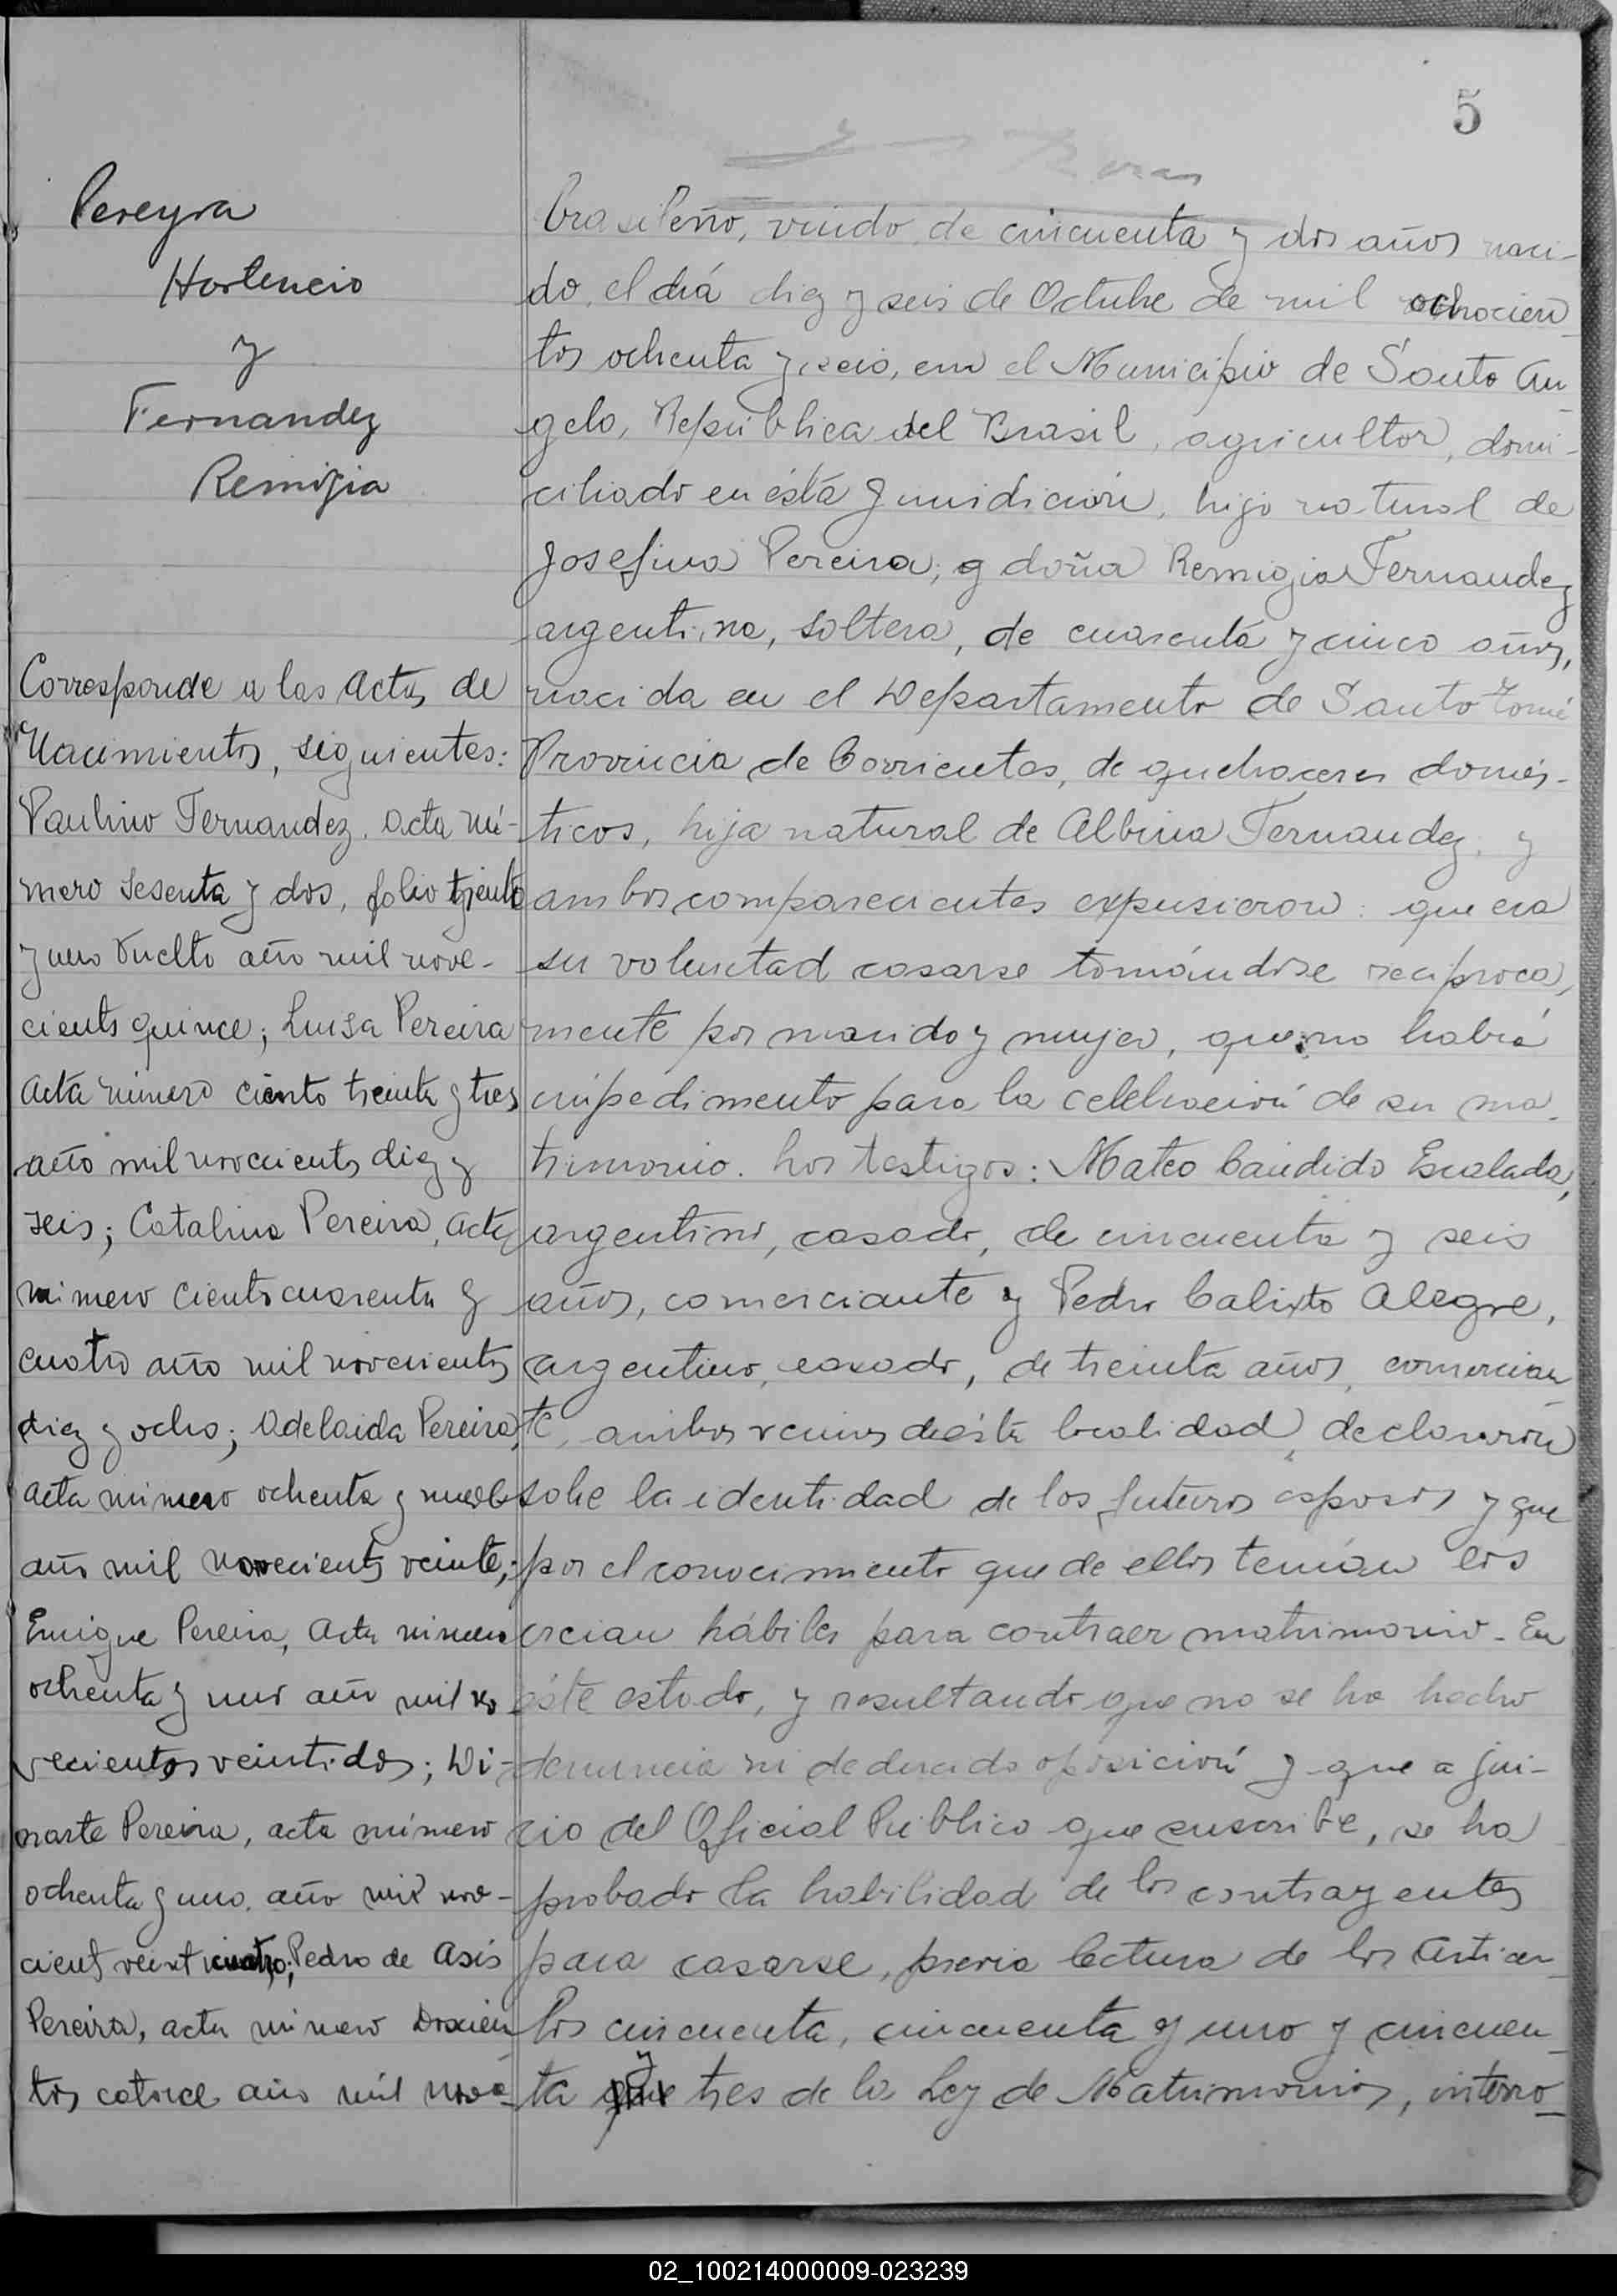 5
Pereyra
Hortencio
y
Fernandez
Remigia
Corresponde a las actas de
Nacimientos, siguientes:
Paulino Fernandez. acta nú-
mero sesenta y dos, folio treinta
y uno vuelto año mil nove-
cientos quince; Luisa Pereira
acta número ciento treinta y tres
año mil novecientos diez y
seis; Catalina Pereira, acta
número ciento cuarenta y
cuatro año mil novecientos
diez y ocho; Adelaida Pereira,
acta número ochenta y nueve
año mil novecientos veinte;
Enrique Pereira, acta número
ochenta y uno año mil no
vecientos veintidos; Di-
narte Pereira, acta número
ochenta y uno. año mil nove-
cientos veinticuatro; Pedro de Asis
Pereira, acta número doscien
tos catorce año mil nove-
brasileño, viudo de cincuenta y dos años naci-
do el día diez y seis de Octubre de mil ochocien
tos ochenta y seis, en el Municipio de Santo An
gelo, República del Brasil, agricultor, domi-
ciliado en ésta Jurisdicción, hijo natural de
Josefina Pereira; y doña Remigia Fernandez
argentina, soltera, de cuarenta y cinco años,
nacida en el Departamento de Santo Tomé
Provincia de Corrientes, de quehaceres domés-
ticos, hija natural de Albina Fernandez, y
ambos comparecientes expusieron: que era
su voluntad casarse tomándose reciproca
mente por marido y mujer, que no había
impedimento para la celebración de su ma-
trimonio. Los testigos: Mateo Candido Escalada,
argentino, casado, de cincuenta y seis
años, comerciante y Pedro Calixto Alegre,
argentino, casado, de treinta años, comercian
te, ambos vecinos de ésta localidad, declararon
sobre la identidad de los futuros esposos y que
por el conocimiento que de ellos tenían los
creian hábiles para contraer matrimonio - En
éste estado, y resultando que no se ha hecho
denuncia ni deducido oposición y que a jui-
cio del Oficial Público que suscribe, se ha
probado la habilidad de los contrayentes
para casarse, previa lectura de los artícu
los cincuenta, cincuenta y uno y cincuen
ta y tres de la Ley de Matrimonios, interro-
02_100214000009-023239